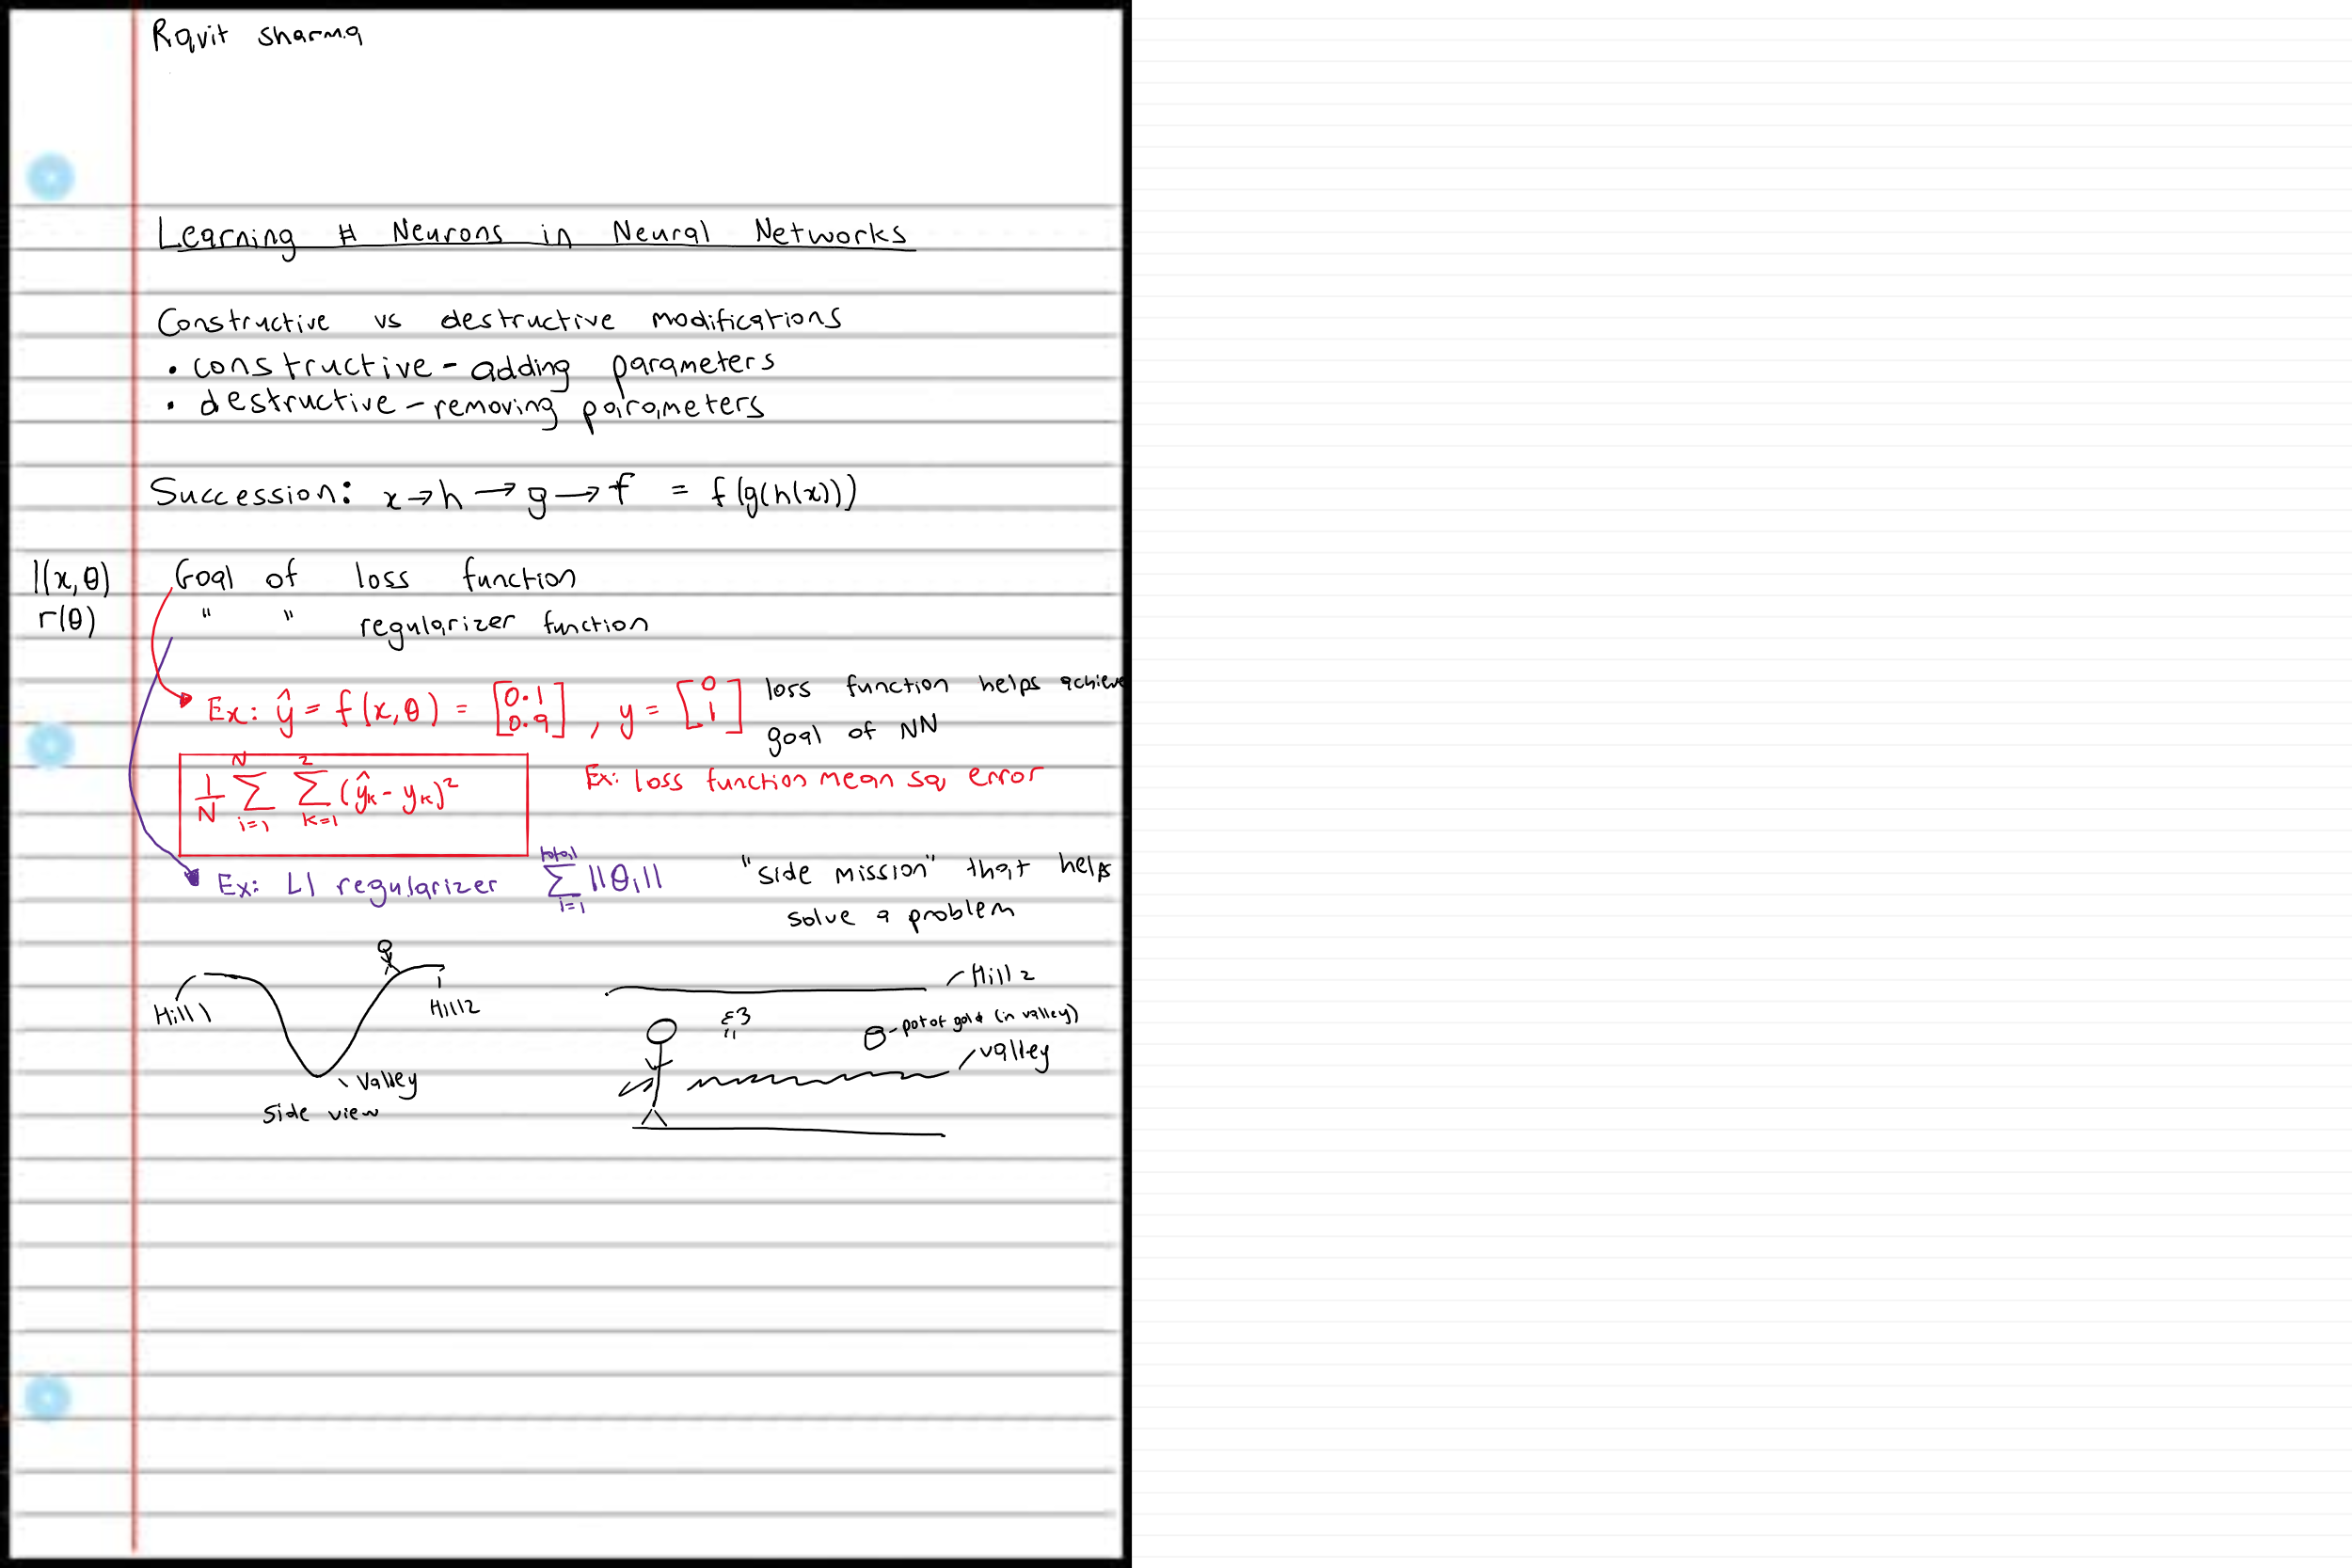 Ravit Sharma
Learning # Neurons in Neural Networks
Constructive vs destructive modifications
• constructive - adding parameters
• destructive - removing parameters
Succession: x → h → g → f = f(g(h(x)))
l(x,θ) Goal of loss function
r(θ) " " regularizer function
Ex: ŷ = f(x,θ) = [0.1 0.9], y = [0 1] loss function helps achieve
goal of NN
1/N Σ_{i=1}^{N} Σ_{k=1}^{2} (ŷₖ - yₖ)² Ex: loss function mean sq error
Ex: L1 regularizer Σ_{i=1}^{total} ||θᵢ|| "side mission" that helps
solve a problem
Hill 1
Hill 2
Valley
Side view
Hill 2
pot of gold (in valley)
valley